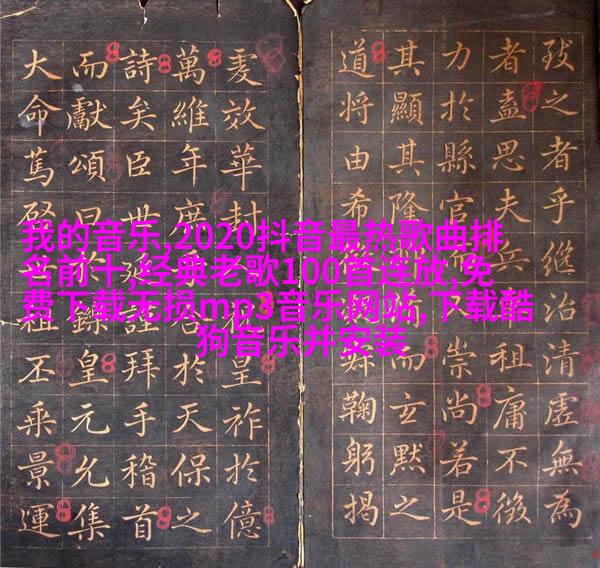 我的音乐,2020抖音最热歌曲排
名前十,经典老歌100首连放,免
费下载无损mp3音乐网站,下载酷
狗音乐并安装
之者乎繼治清虛無為
者思夫祖庸不
力於縣官而崇尚若是
其顯其隆而玄默之
道將由希鞠躬揭
效華封皇祚於億
萬維年於天保之
詩矣臣世謹拜手稽首
而獻頌曰於鑠皇元允集
大命篤祖丕乘景運